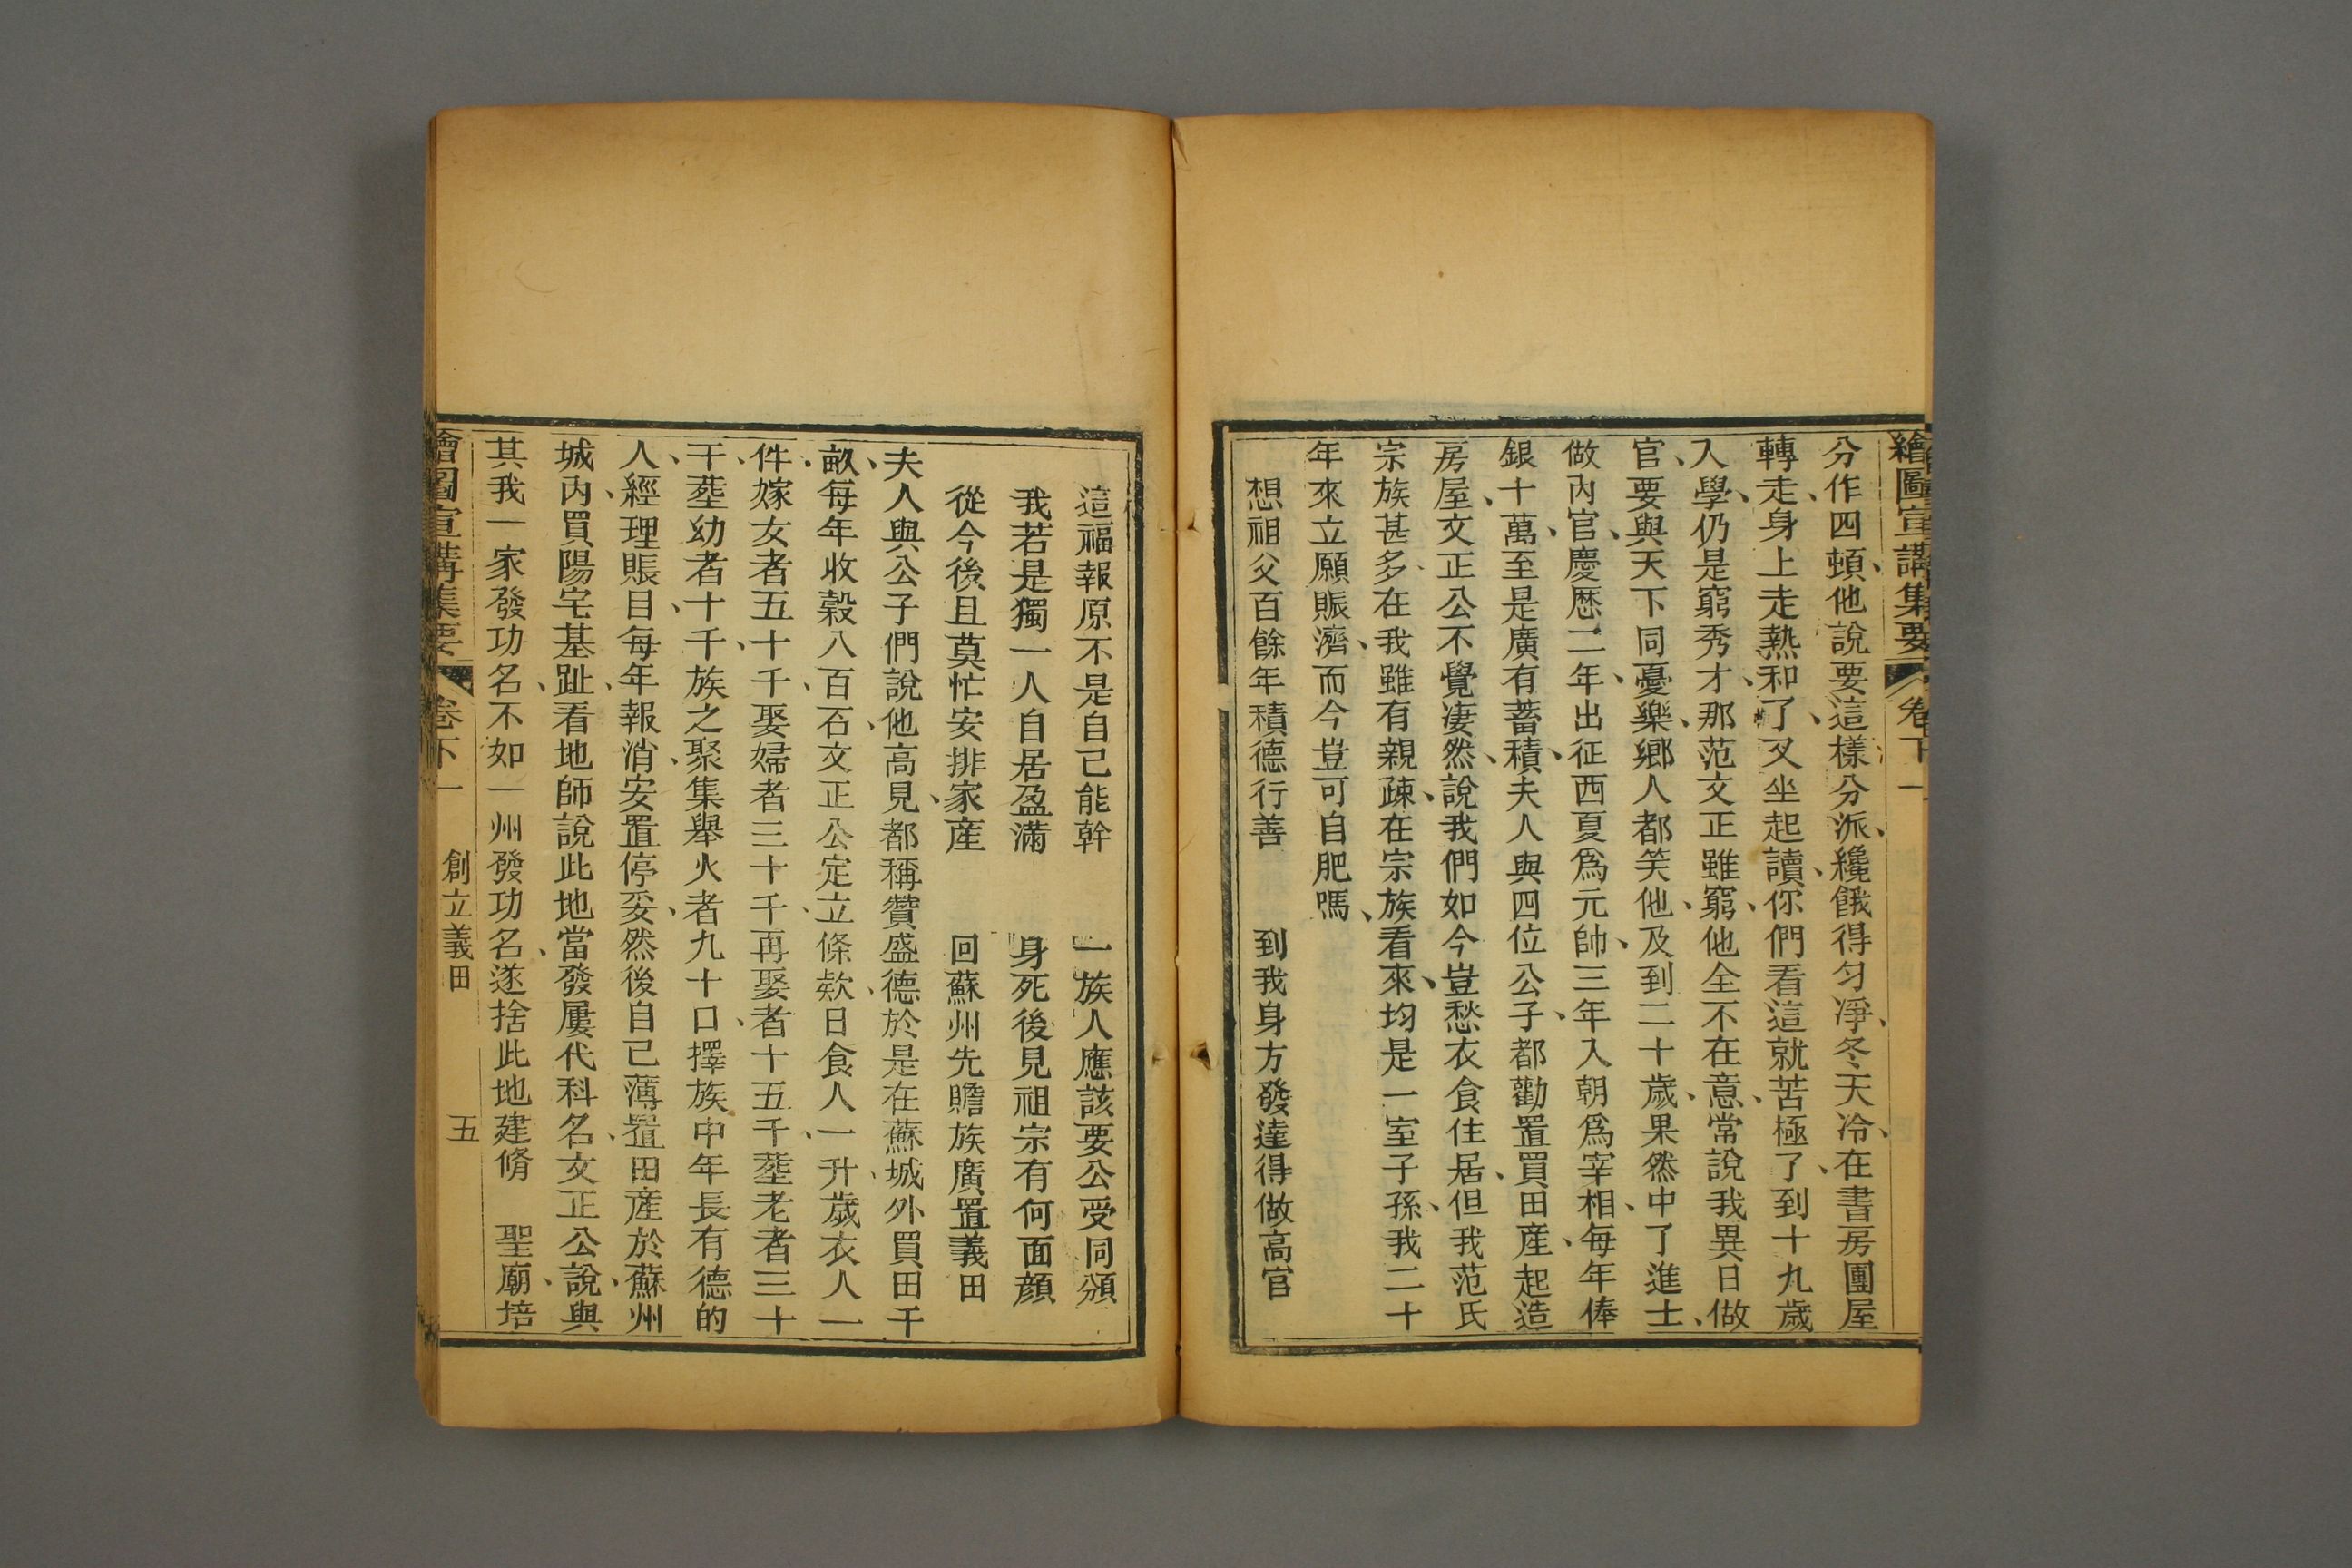 繪圖宣講集要 卷下一
分作四頓、他說要這樣分派、纔餓得勻凈、冬天冷、在書房團屋
轉走、身上走熱和了、又坐起讀、你們看這就苦極了、到十九歲
入學、仍是窮秀才、那范文正雖窮、他全不在意、常說我異日做
官、要與天下同憂樂、鄉人都笑他、及到二十歲、果然中了進士、
做內官、慶歷二年、出征西夏爲元帥、三年入朝爲宰相、每年俸
銀十萬、至是廣有蓄積、夫人與四位公子、都勸置買田產、起造
房屋、文正公不覺淒然、說我們如今豈愁衣食住居、但我范氏
宗族甚多、在我雖有親疎、在宗族看來、均是一室子孫、我二十
年來立願賑濟、而今豈可自肥嗎、
想祖父百餘年積德行善 到我身方發達得做高官
這福報原不是自己能幹 一族人應該要公受同頒
我若是獨一人自居盈滿 身死後見祖宗有何面顏
從今後且莫忙安排家產 回蘇州先贍族廣置義田
夫人與公子們說他高見、都稱贊盛德、於是在蘇城外買田千
畝、每年收穀八百石、文正公定立條欵、日食人一升、歲衣人一
件、嫁女者五十千、娶婦者三十千、再娶者十五千、塟老者三十
千、塟幼者十千、族之聚集舉火者九十口、擇族中年長有德的
人、經理賬目、每年報消、安置停妥、然後自己薄置田產、於蘇州
城內、買陽宅基趾、看地師說此地當發屢代科名、文正公說、與
其我一家發功名、不如一州發功名、遂捨此地建脩 聖廟、培
繪圖宣講集要 卷下一 創立義田 五